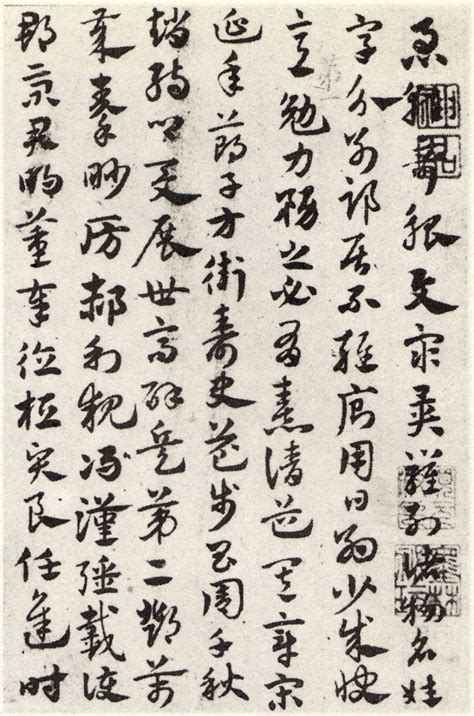 急就奇觚與眾異羅列諸物名姓
字分別部居不雜廁用日約少誠快
意勉力務之必有憙請道其章宋
延年鄭子方衛壽史步昌周千秋
趙孺卿爰展世高辟兵第二鄧萬
歲秦眇房郝利親馮漢強戴護
郡景君明董奉德桓賢良任逢時